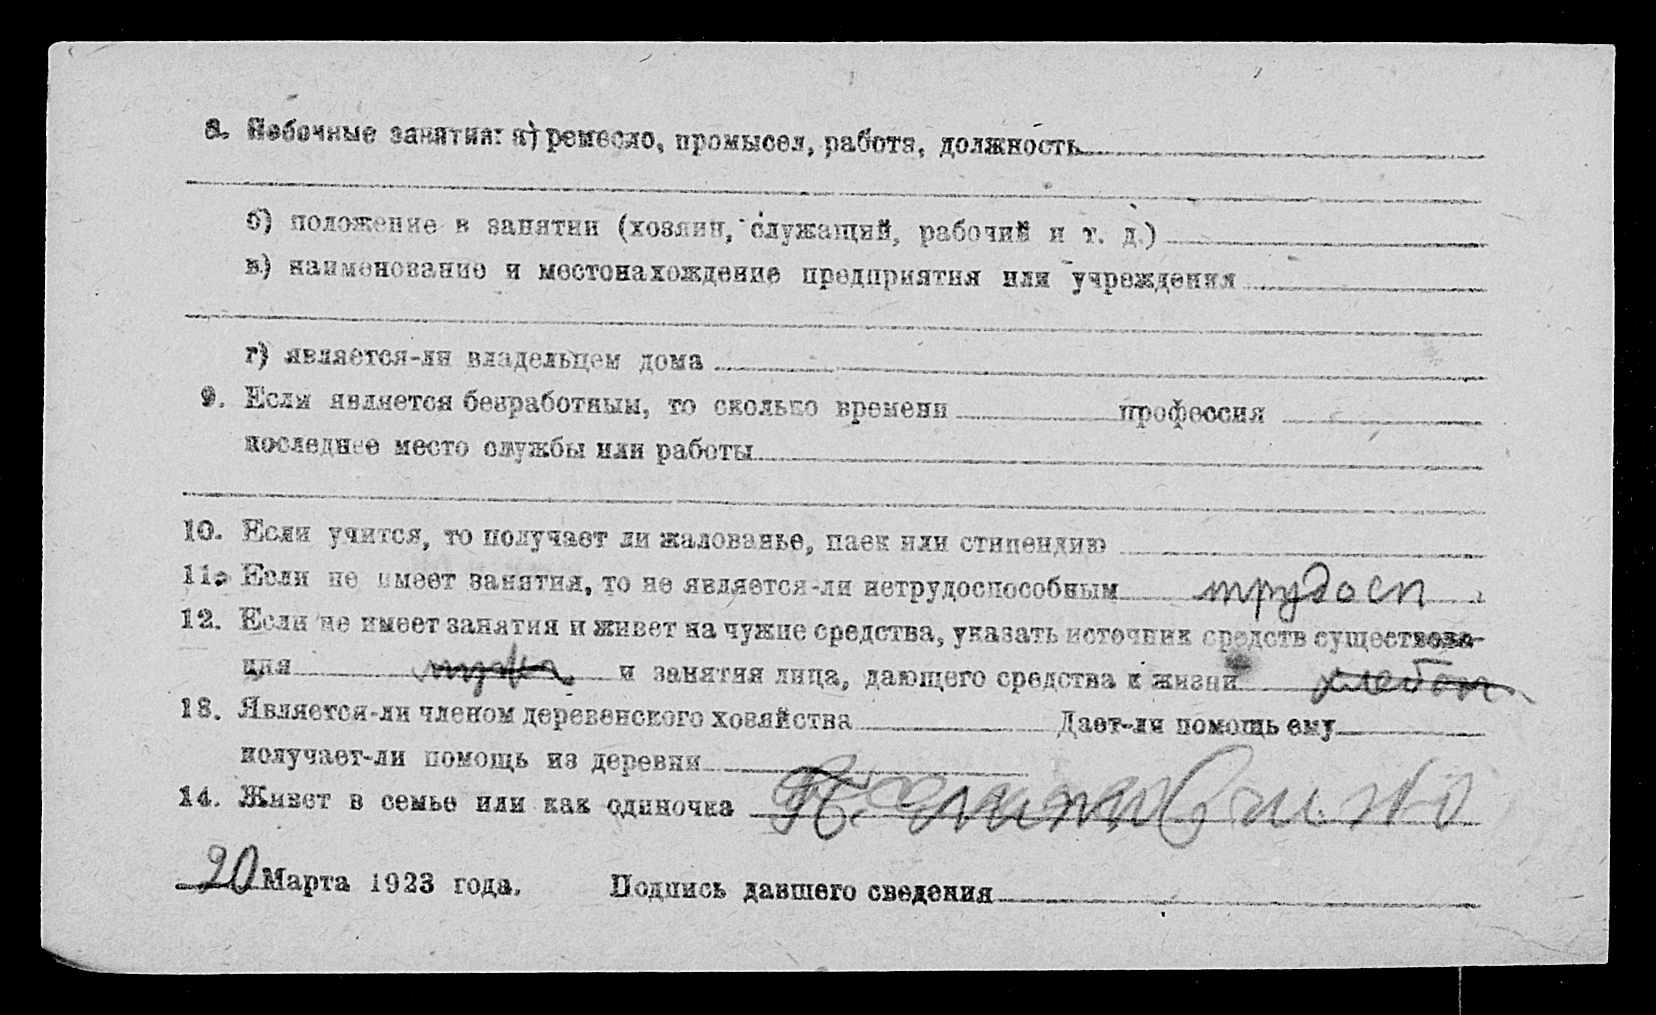 8. Побочные занятия: а) ремесло, промысел, работа, должность
б) положение в занятии (хозяин, служащий, рабочий и т. д.)
в) наименование и местонахождение предприятия или учреждения
г) является-ли владельцем дома
9. Если является безработным, то сколько времени профессия
последнее место службы или работы
10. Если учится, то получает ли жалованье, паек или стипендию
11. Если не имеет занятия, то не является-ли нетрудоспособным трудосп
12. Если не имеет занятия и живет на чужие средства, указать источник средств существова-
ния мужа и занятия лица, дающего средства к жизни
13. Является-ли членом деревенского хозяйства Дает-ли помощь ему
получает-ли помощь из деревни
14. Живет в семье или как одиночка
20 Марта 1923 года. Подпись давшего сведения